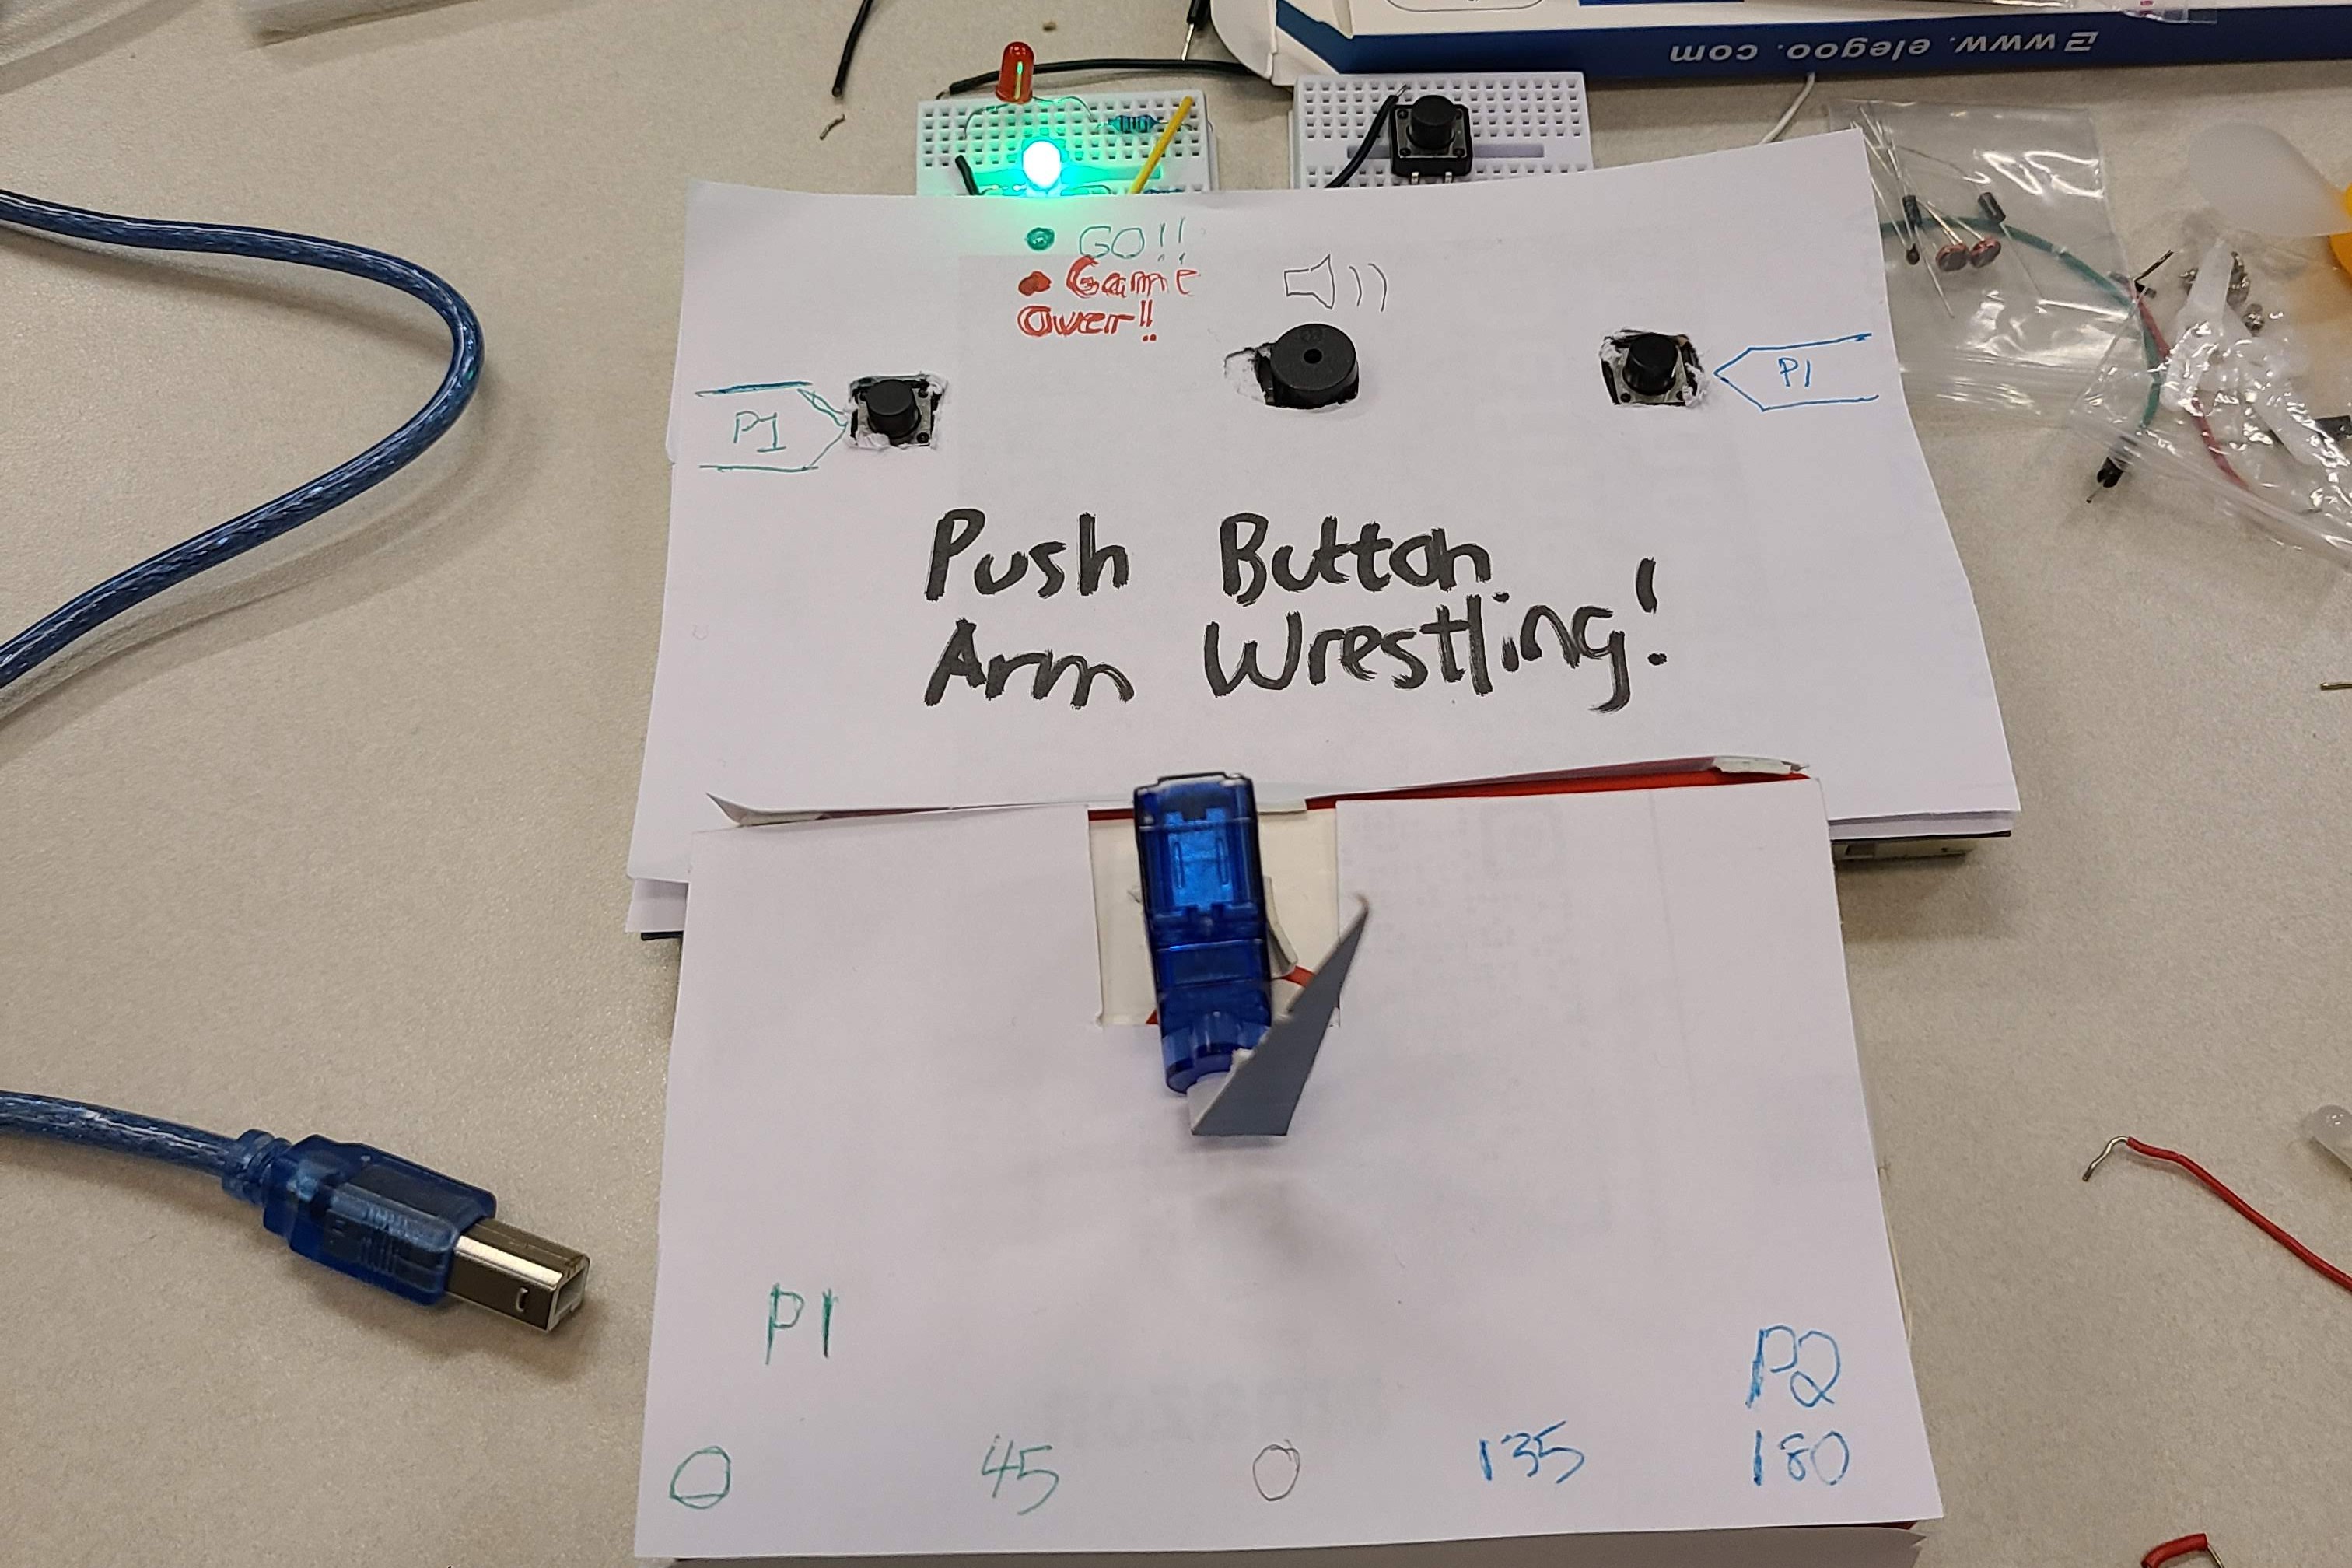 www.elegoo.com
GO!!
Game
Over!!
P1
P1
Push Button
Arm Wrestling!
P1
P2
0 45 0 135 180